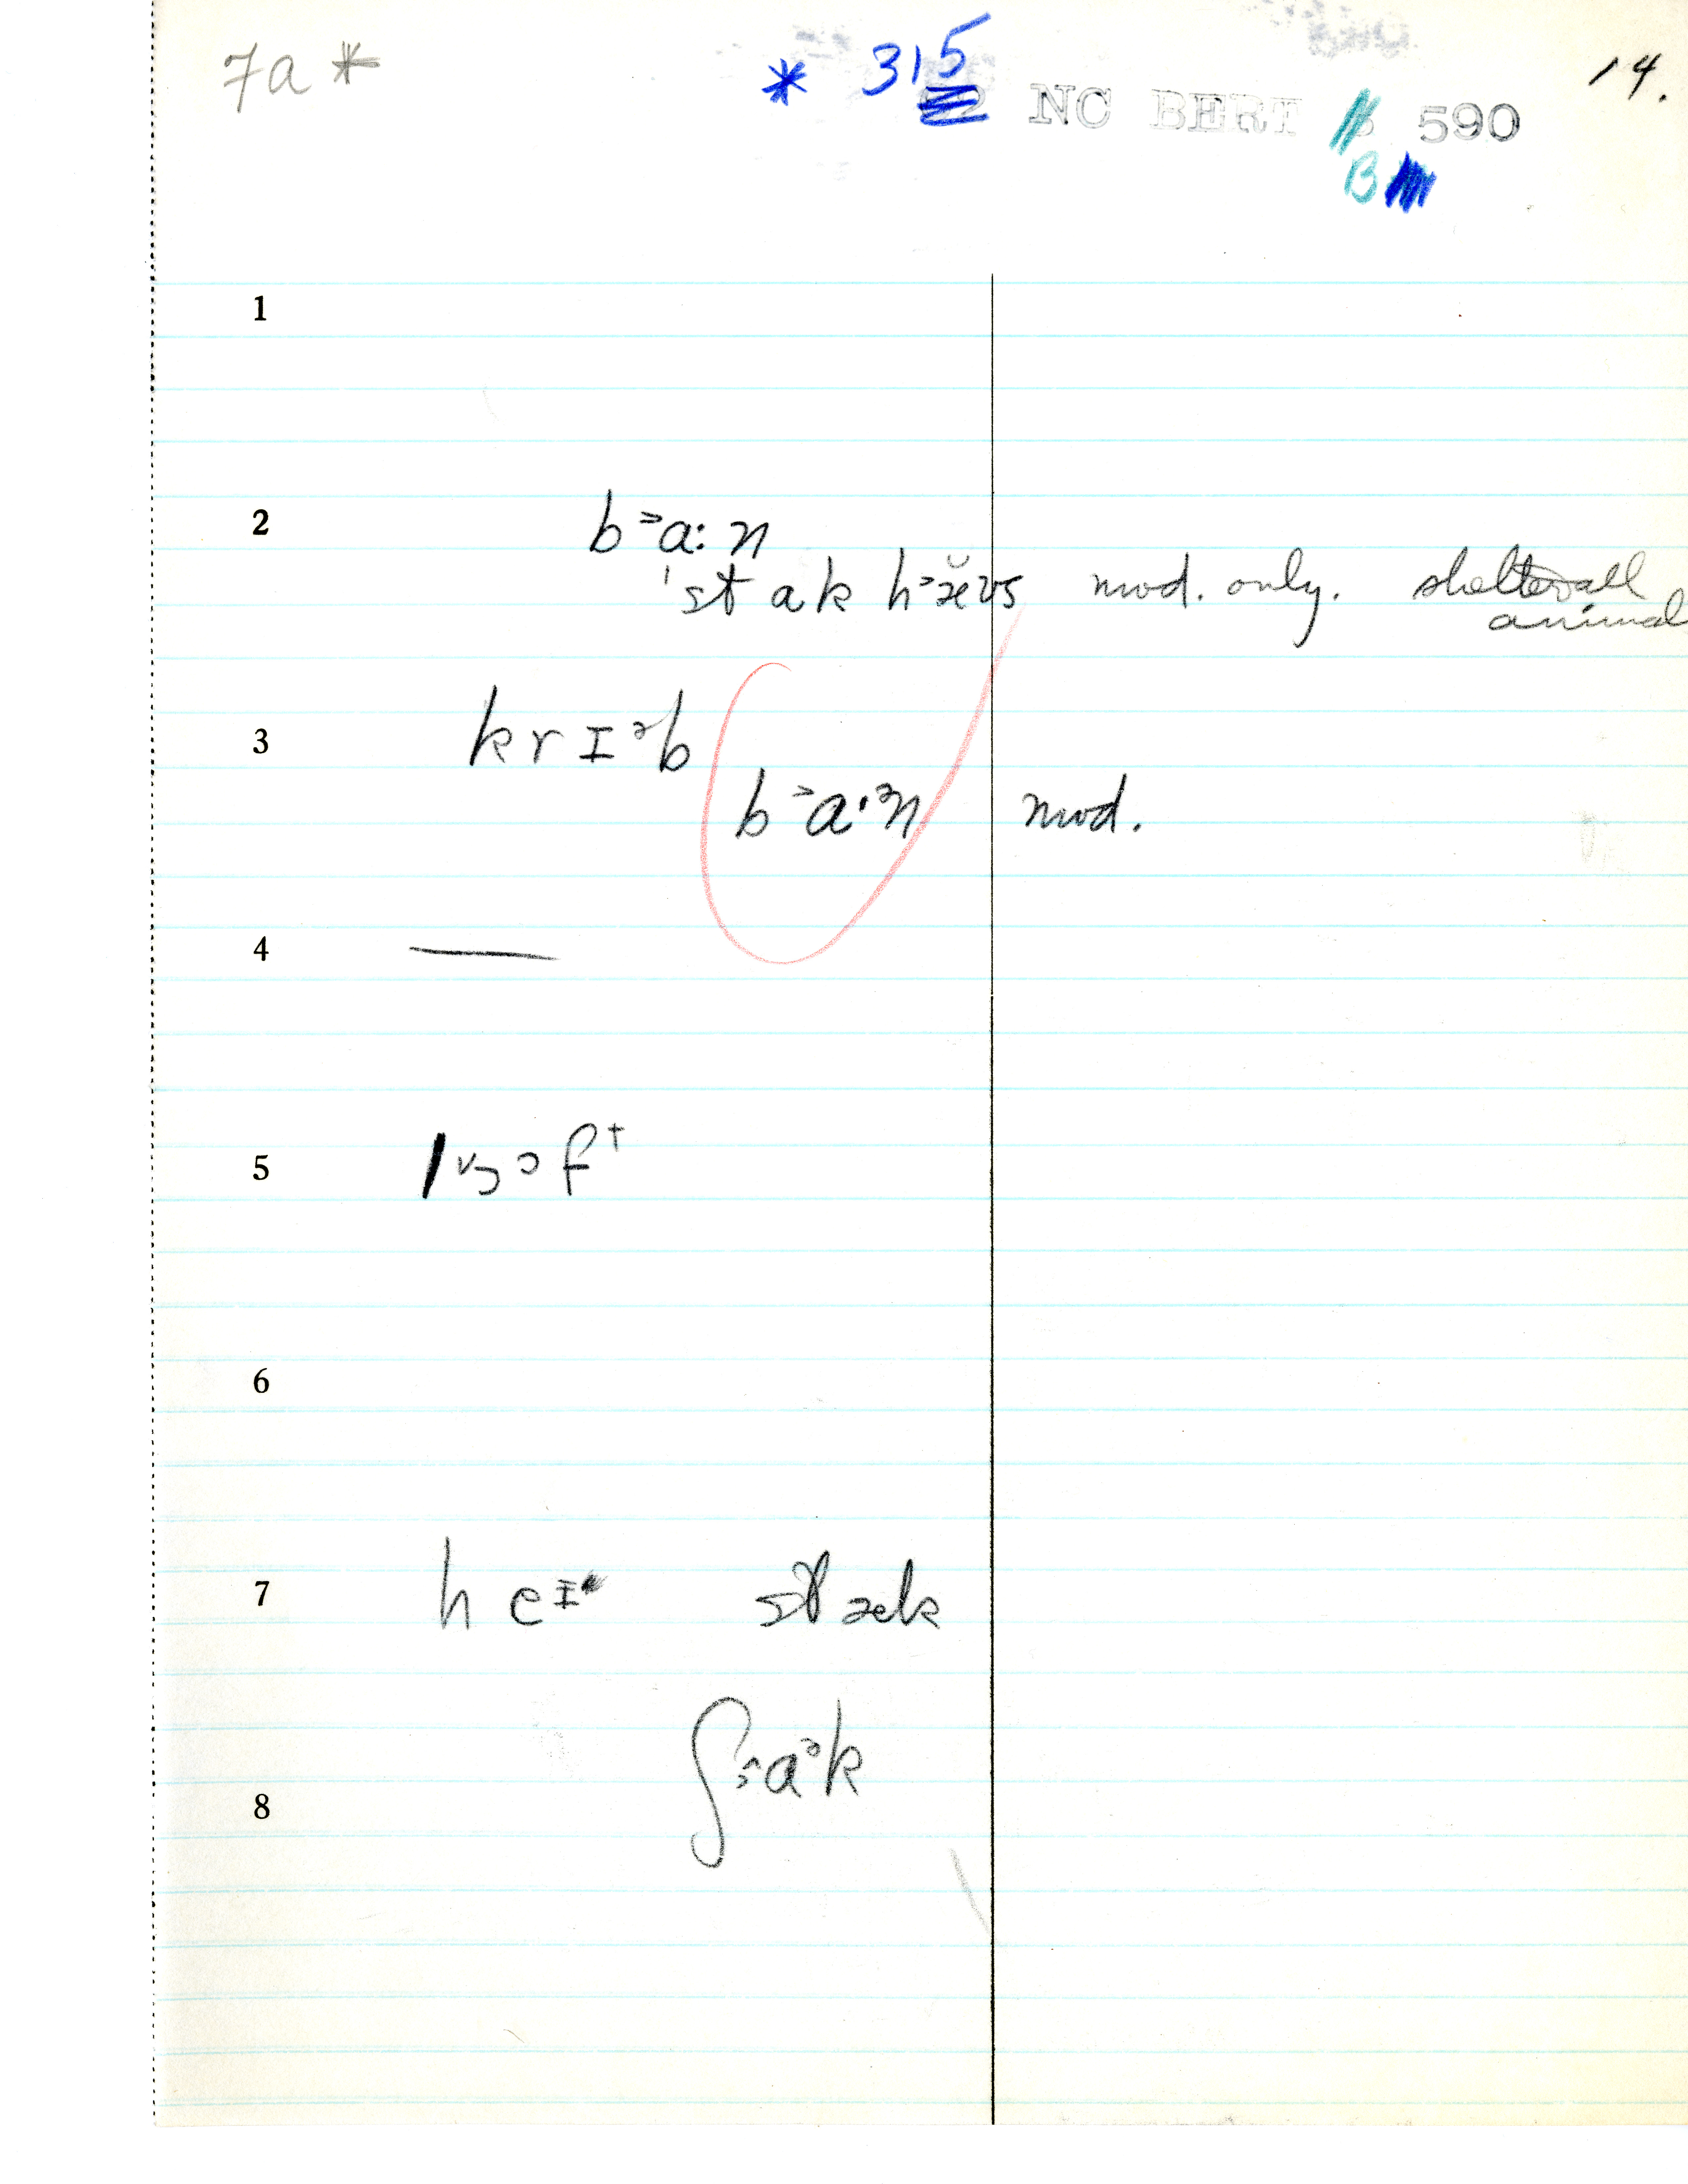 7a *
* 315 NC BERT 590 14.
B
1
2 b ᵊa: n
'st a k h ᵊæ̆ʊs mod. only. shelter all
animals
3 k r ɪ ᵊb
b ᵊa·ᵊn mod.
4 —
5 f
6
7 h e ɪ st æk
8 ʃ a ᵊk